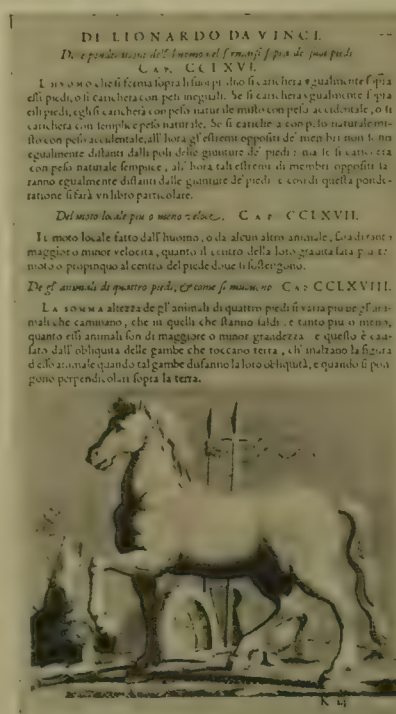 DI LIONARDO DA VINCI.
ponderatione dell'huomo nel fermarsi sopra de suoi piedi
CAP. CCLXVI.
L'HVOMO che si ferma sopra li suoi piedi, o si caricherà egualmente sopra
essi piedi, o si caricherà con pesi ineguali. Se si caricherà egualmente sopra
essi piedi, egli si caricherà con peso naturale misto con peso accidentale, o si
caricherà con semplice peso naturale. Se si carica con peso naturale mi-
sto con peso accidentale, all'hora gl'estremi oppositi de' membri non sono
egualmente distanti dalli poli delle giunture de' piedi: ma se si caricherà
con peso naturale semplice, all'hora tali estremi di membri oppositi sa-
ranno egualmente distanti dalle giunture de' piedi: e così di questa ponde-
ratione si farà vn libro particolare.
Del moto locale piu o meno veloce. CAP. CCLXVII.
IL moto locale fatto dall'huomo, o da alcun altro animale, sarà di tanto
maggior o minor velocità, quanto il centro della loro grauità sarà più re-
moto o propinquo al centro del piede doue si sostengono.
De gl'animali di quattro piedi, & come si muouono. CAP. CCLXVIII.
LA SOMMA altezza de gl'animali di quattro piedi si varia più ne gl'ani-
mali che caminano, che in quelli che stanno saldi: e tanto più o meno,
quanto essi animali son di maggiore o minor grandezza: e questo è cau-
sato dall'obliquità delle gambe che toccano terra, ch'inalzano la figura
d'esso animale quando tal gambe disfanno la loro obliquità, e quando si pon-
gono perpendicolari sopra la terra.
K ij